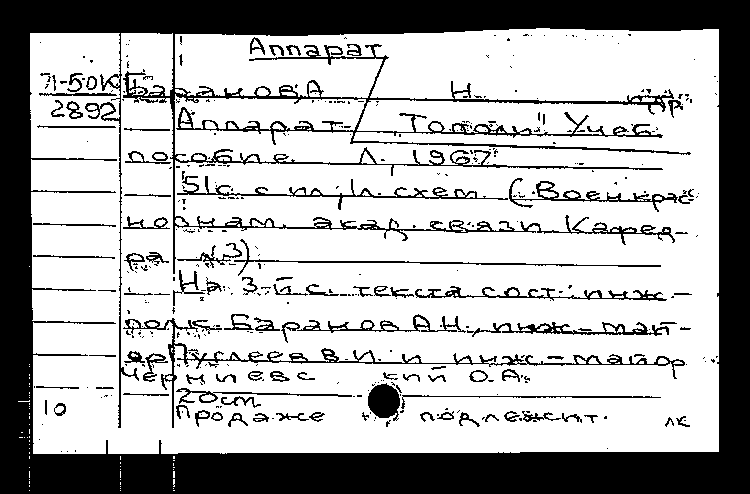 Аппарат
71-50К Баранов, А Н. и др
2892 Аппарат "Тополь" Учеб.
пособие. Л., 1967
51с с ил; 1л. схем. (Воен. крас
нознам. акад. связи. Кафед-
ра №3).
На 3-й с. текста сост.: инж.-
полк. Баранов А.Н., инж.-май-
ор Пуслеев В.И. и инж.-майор
Черниевс кий О.А.
20cm
10 Продаже подлежит. лк